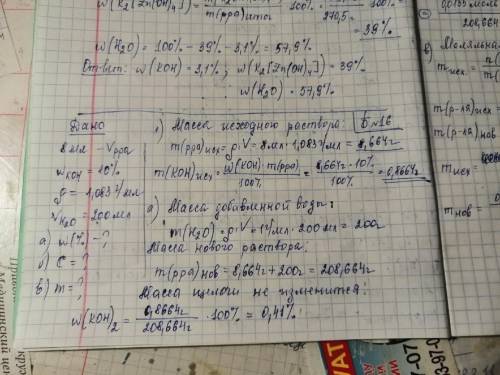 w(K₂[Zn(OH)₄]) =
100%
270,5
100% =
= 39%
w(H₂O) = 100% - 39% - 3,1% = 57,9%
Ответ: w(KOH) = 3,1% ; w(K₂[Zn(OH)₄]) = 39%
w(H₂O) = 57,9%
Дано
8 мл - Vрра
wKOH = 10%
ρ = 1,083 г/мл
VH₂O = 200 мл
а) w(%) - ?
б) C = ?
в) m = ?
1) Масса исходного раствора: Б №16
m(рра)исх = ρ·V = 8 мл · 1,083 г/мл = 8,664г
m(KOH)исх = w(KOH)·m(рра) / 100% = 8,664г · 10% / 100% = 0,8664г
а) Масса добавленной воды:
m(H₂O) = ρ·V = 1 г/мл · 200 мл = 200г
Масса нового раствора.
m(рра)нов = 8,664г + 200г = 208,664г
Масса щелочи не изменится!
w(KOH)₂ = 0,8664г / 208,664г · 100% = 0,41%
208,664
в) Моляльна
mисх =
m(р-ля)исх
m(р-ля)нов
mисх =
mнов =